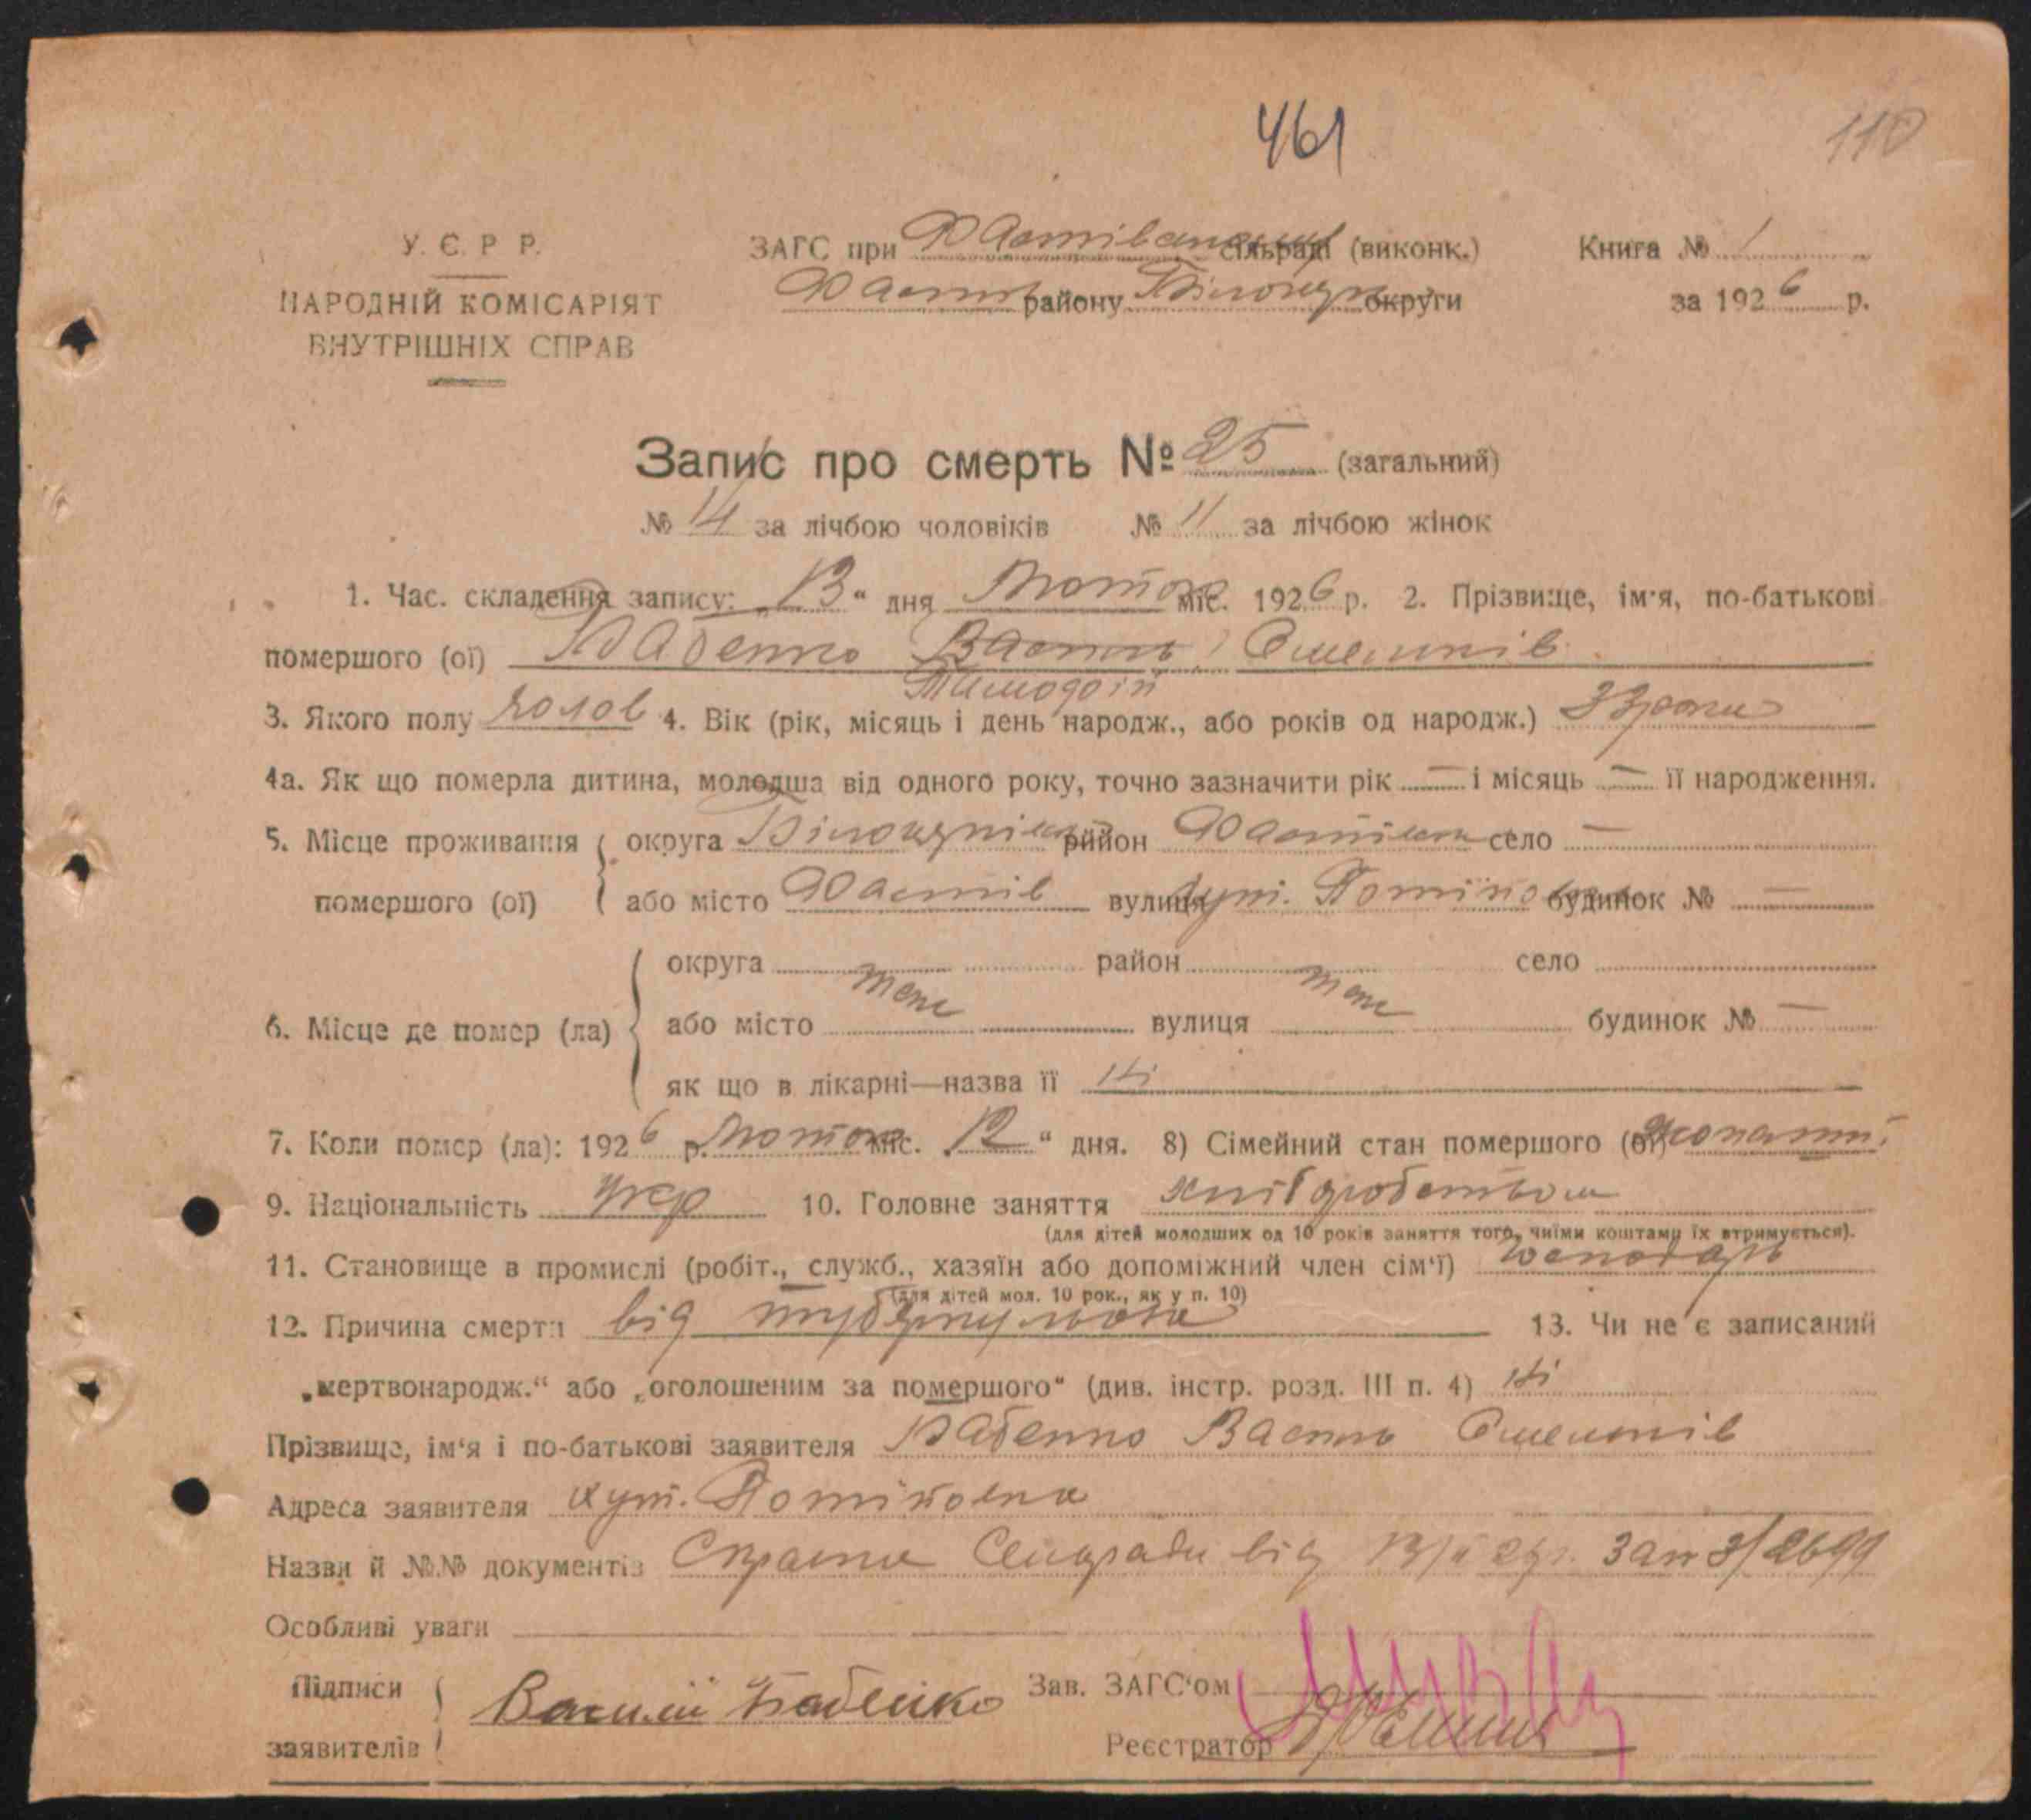 461
110
У. С. Р. Р.
НАРОДНІЙ КОМІСАРІЯТ
ВНУТРІШНІХ СПРАВ
ЗАГС при Фастівській сільраді (виконк.)
Фастів району Білоцерк округи
Книга № 1
за 1926 р.
Запис про смерть № 25 (загальний)
№ 14 за лічбою чоловіків № 11 за лічбою жінок
1. Час. складення запису: „13“ дня Лютого міс. 1926 р. 2. Прізвище, ім'я, по-батькові
помершого (ої) Бабенко Василь Омельків
Тимофій
3. Якого полу чолов 4. Вік (рік, місяць і день народж., або років од народж.)
4а. Як що померла дитина, молодша від одного року, точно зазначити рік — і місяць — її народження.
5. Місце проживання округа Білоцерківськ район Фастівськ село —
помершого (ої) або місто Фастів вулиця хут. Потіївка будинок № —
округа район село
6. Місце де помер (ла) або місто теж вулиця теж будинок № —
як що в лікарні—назва її Ні
7. Коли помер (ла): 1926 р. Лютого міс. „12“ дня. 8) Сімейний стан помершого (ої) жонатий
9. Національність Укр 10. Головне заняття хліборобством
(для дітей молодших од 10 років заняття того, чиїми коштами їх втримується).
11. Становище в промислі (робіт., служб., хазяїн або допоміжний член сім'ї) господарь
(для дітей мол. 10 рок., як у п. 10)
12. Причина смерти від туберкульоза 13. Чи не є записаний
„мертвонародж.“ або „оголошеним за помершого“ (див. інстр. розд. III п. 4) Ні
Прізвище, ім'я і по-батькові заявителя Бабенко Василь Омельків
Адреса заявителя хут. Потіївка
Назви й №№ документів Справка Селиради від за №
Особливі уваги
Підписи
заявителів
Василій Бабенко
Зав. ЗАГС'ом
Реєстратор